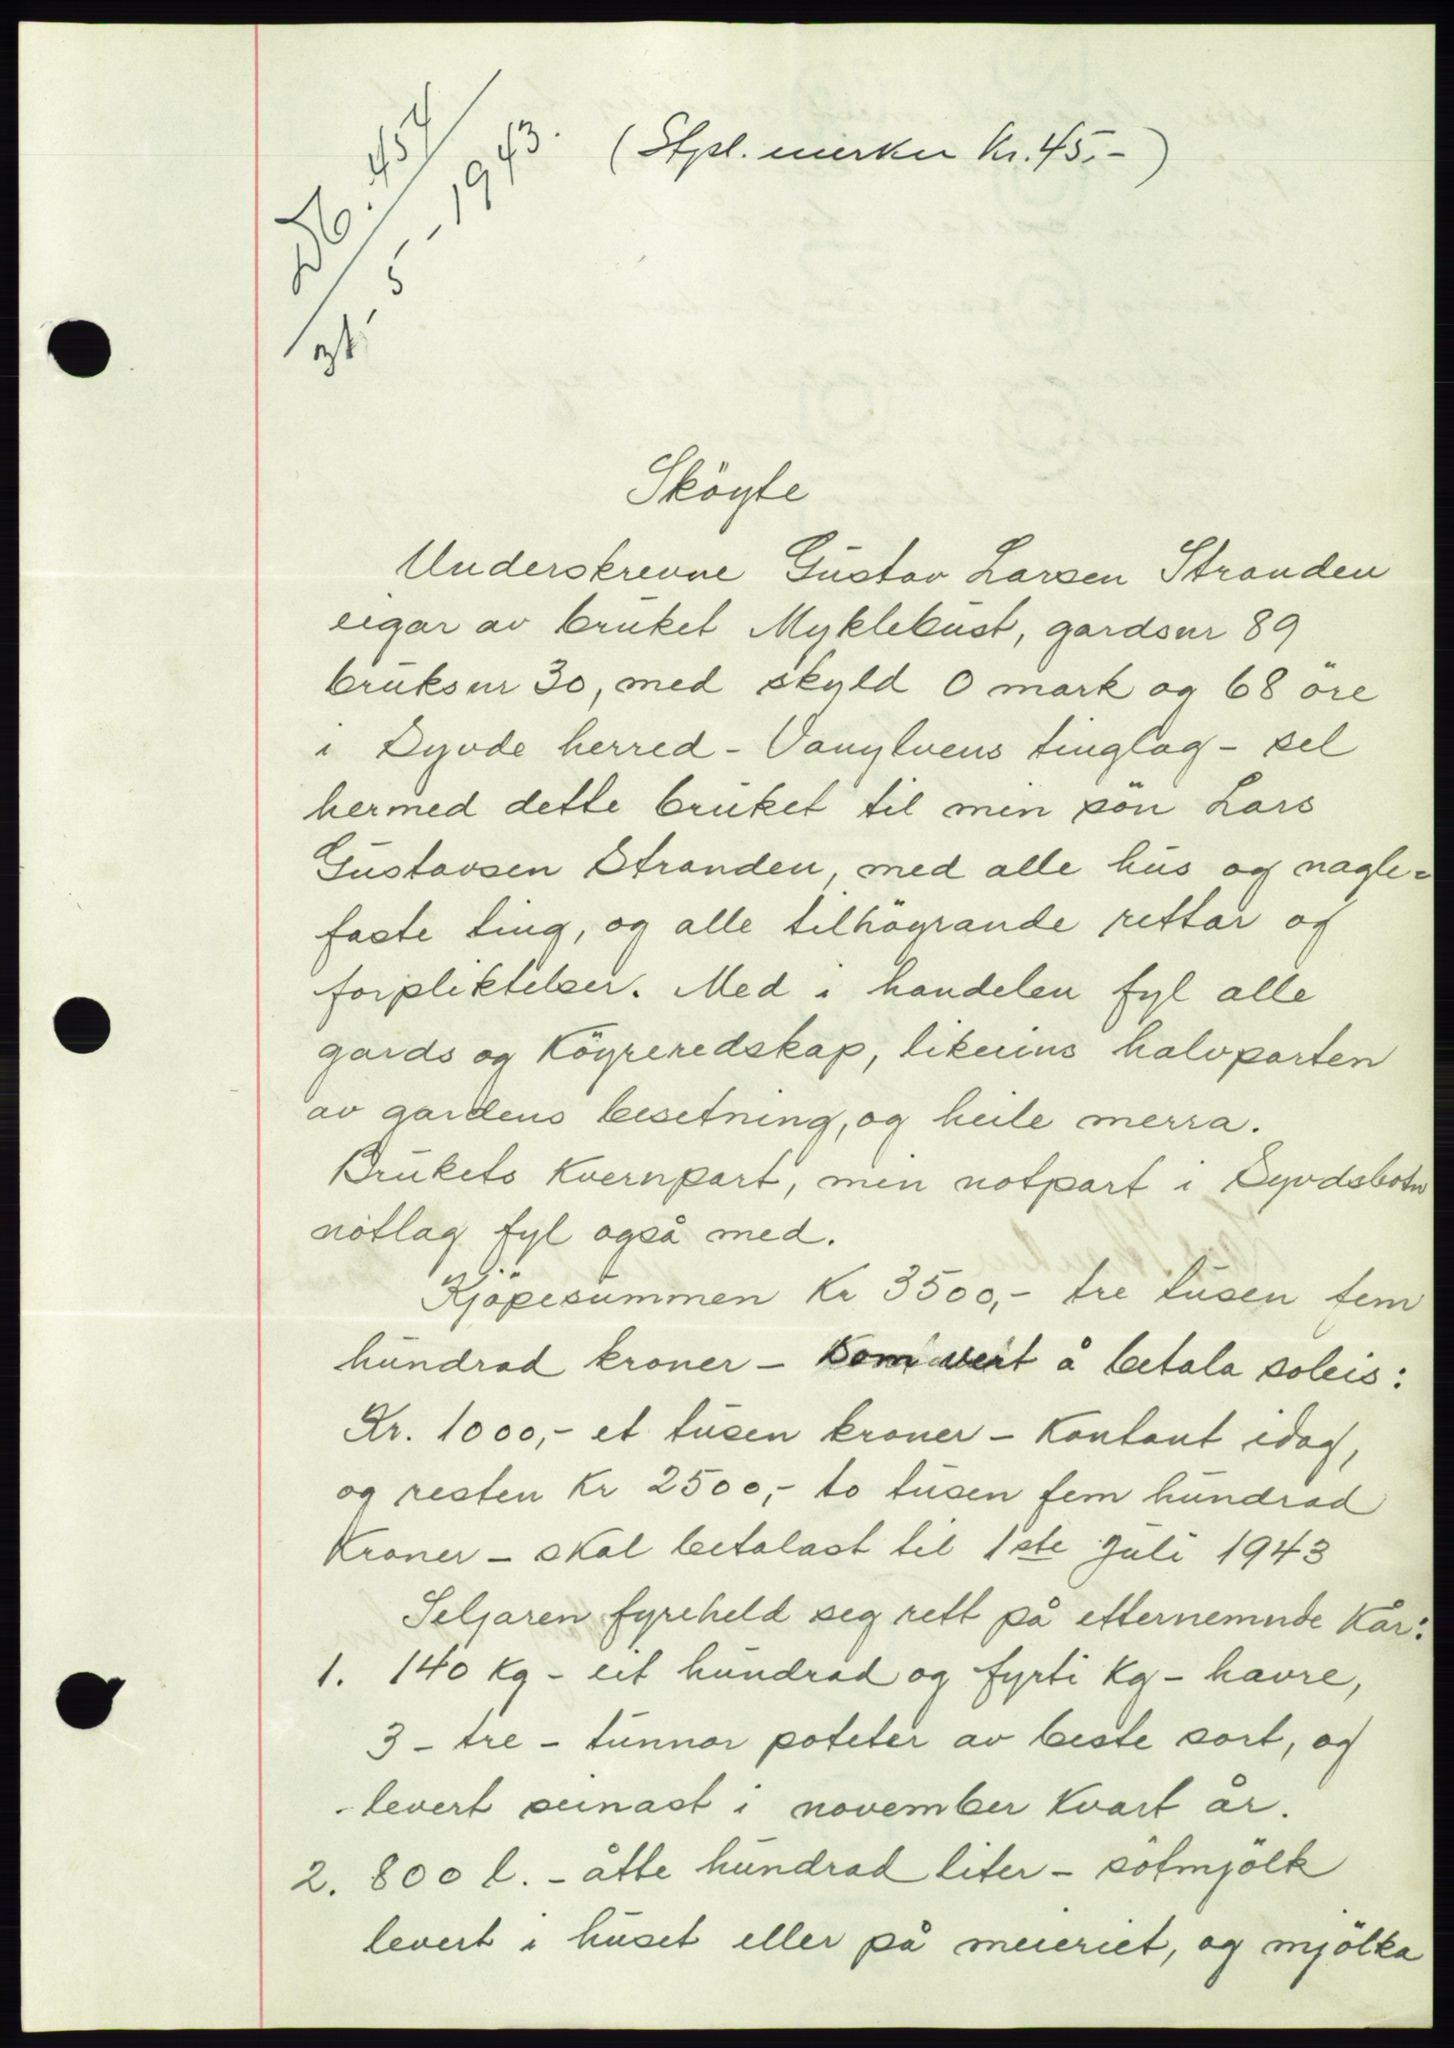 Db. 457
3/5-1943.
(Stpl. merker Kr. 45,-)
Sköyte
Underskrevne Gustav Larsen Stranden
eigar av bruket Myklebust, gardsnr 89
bruksnr 30, med skyld 0 mark og 68 öre
i Syvde herred - Vanylvens tinglag - sel
hermed dette bruket til min sön Lars
Gustavsen Stranden, med alle hus og nagle=
faste ting, og alle tilhöyrande rettar og
forpliktelser. Med i handelen fyl alle
gards og Köyreredskap, likeeins halvparten
av gardens besetning, og heile merra.
Brukets Kvernpart, min notpart i Syvdsbotn
notlag fyl også med.
Kjöpesummen Kr 3500,- tre tusen fem
hundrad kroner - som vert å betala soleis:
Kr. 1000,- et tusen kroner - Kontant idag,
og resten Kr 2500,- to tusen fem hundrad
Kroner - skal betalast til 1ste Juli 1943
Seljaren fyreheld seg rett på etternemnde Kår:
1. 140 Kg - eit hundrad og fyrti Kg - havre,
3 - tre - tunnor poteter av beste sort, og
levert seinast i november Kvart år.
2. 800 l. - åtte hundrad liter - sötmjölk
levert i huset eller på meieriet, og mjölka